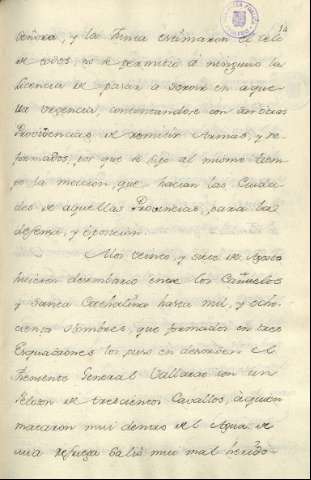 Señora, y la Firma estimaron el celo
de todos, no se permitió á ninguno la
licencia de pasar a servir en aque
lla urgencia, contentandose con
Providencias, de remitir Armas, y re
formados, por que se dijo al mismo tiem
po la mocion, que hacian las Ciuda
des de aquellas Provincias, para la
defensa, y oposicion.
Alos veinte, y siete de Agosto
hicieron desembarco entre los Cañuelos
y Santa Cathalina hasta mil, y ocho
cientos Hombres, que formados en tres
Esquadrones los puso en desorden el
Theniente General Vallarao con un
Peloton de trescientos Cavallos, á quien
mataron mui dentro del Agua de
una refriega Salió mui mal herido